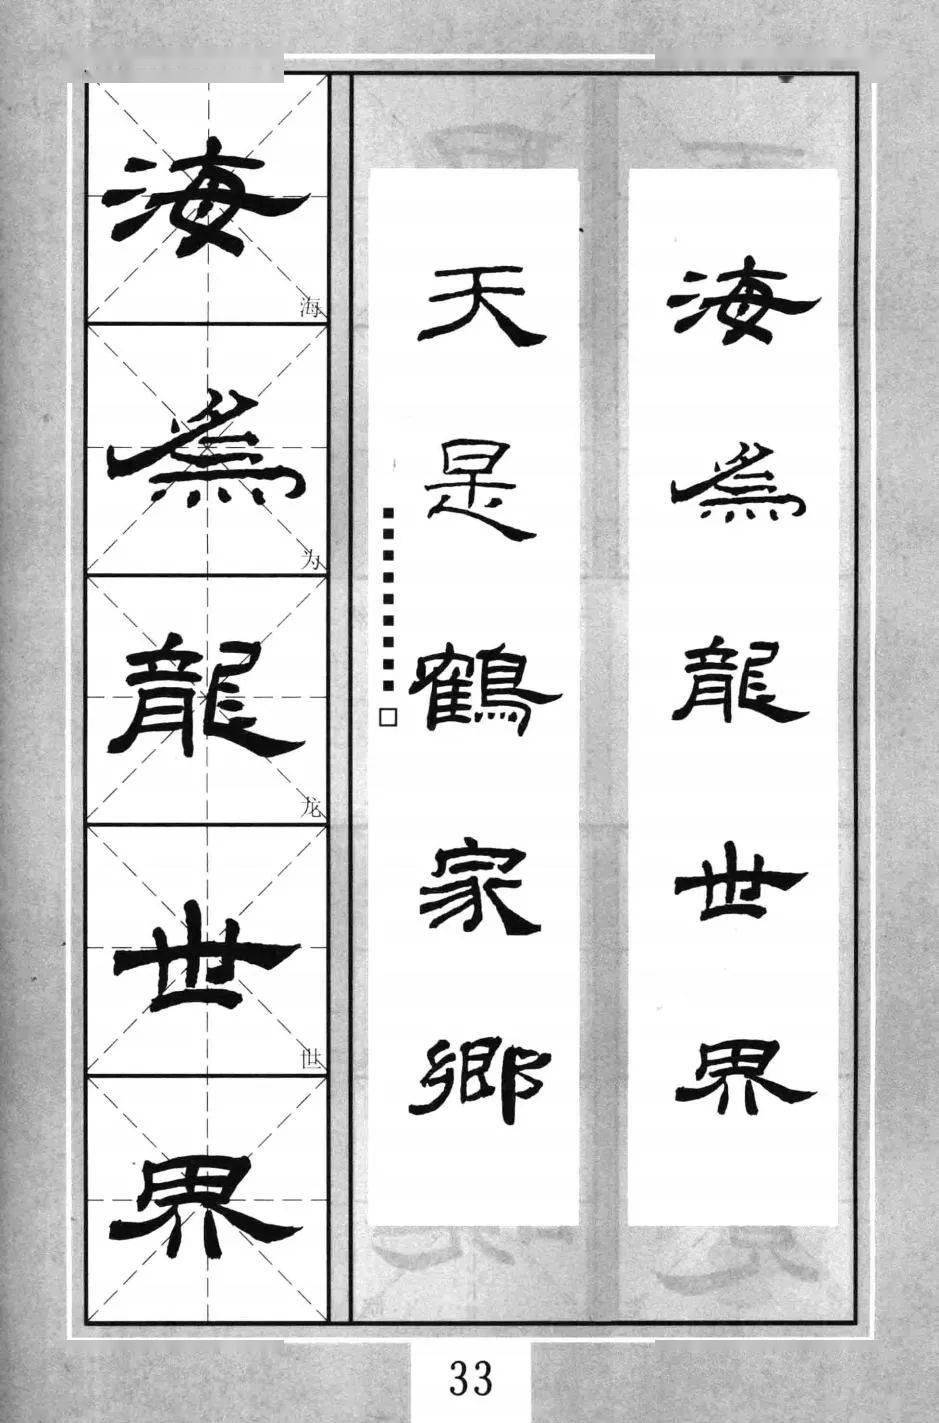 海為龍世界
天是鶴家鄉
海
海
為
为
龍
龙
世
世
界
33